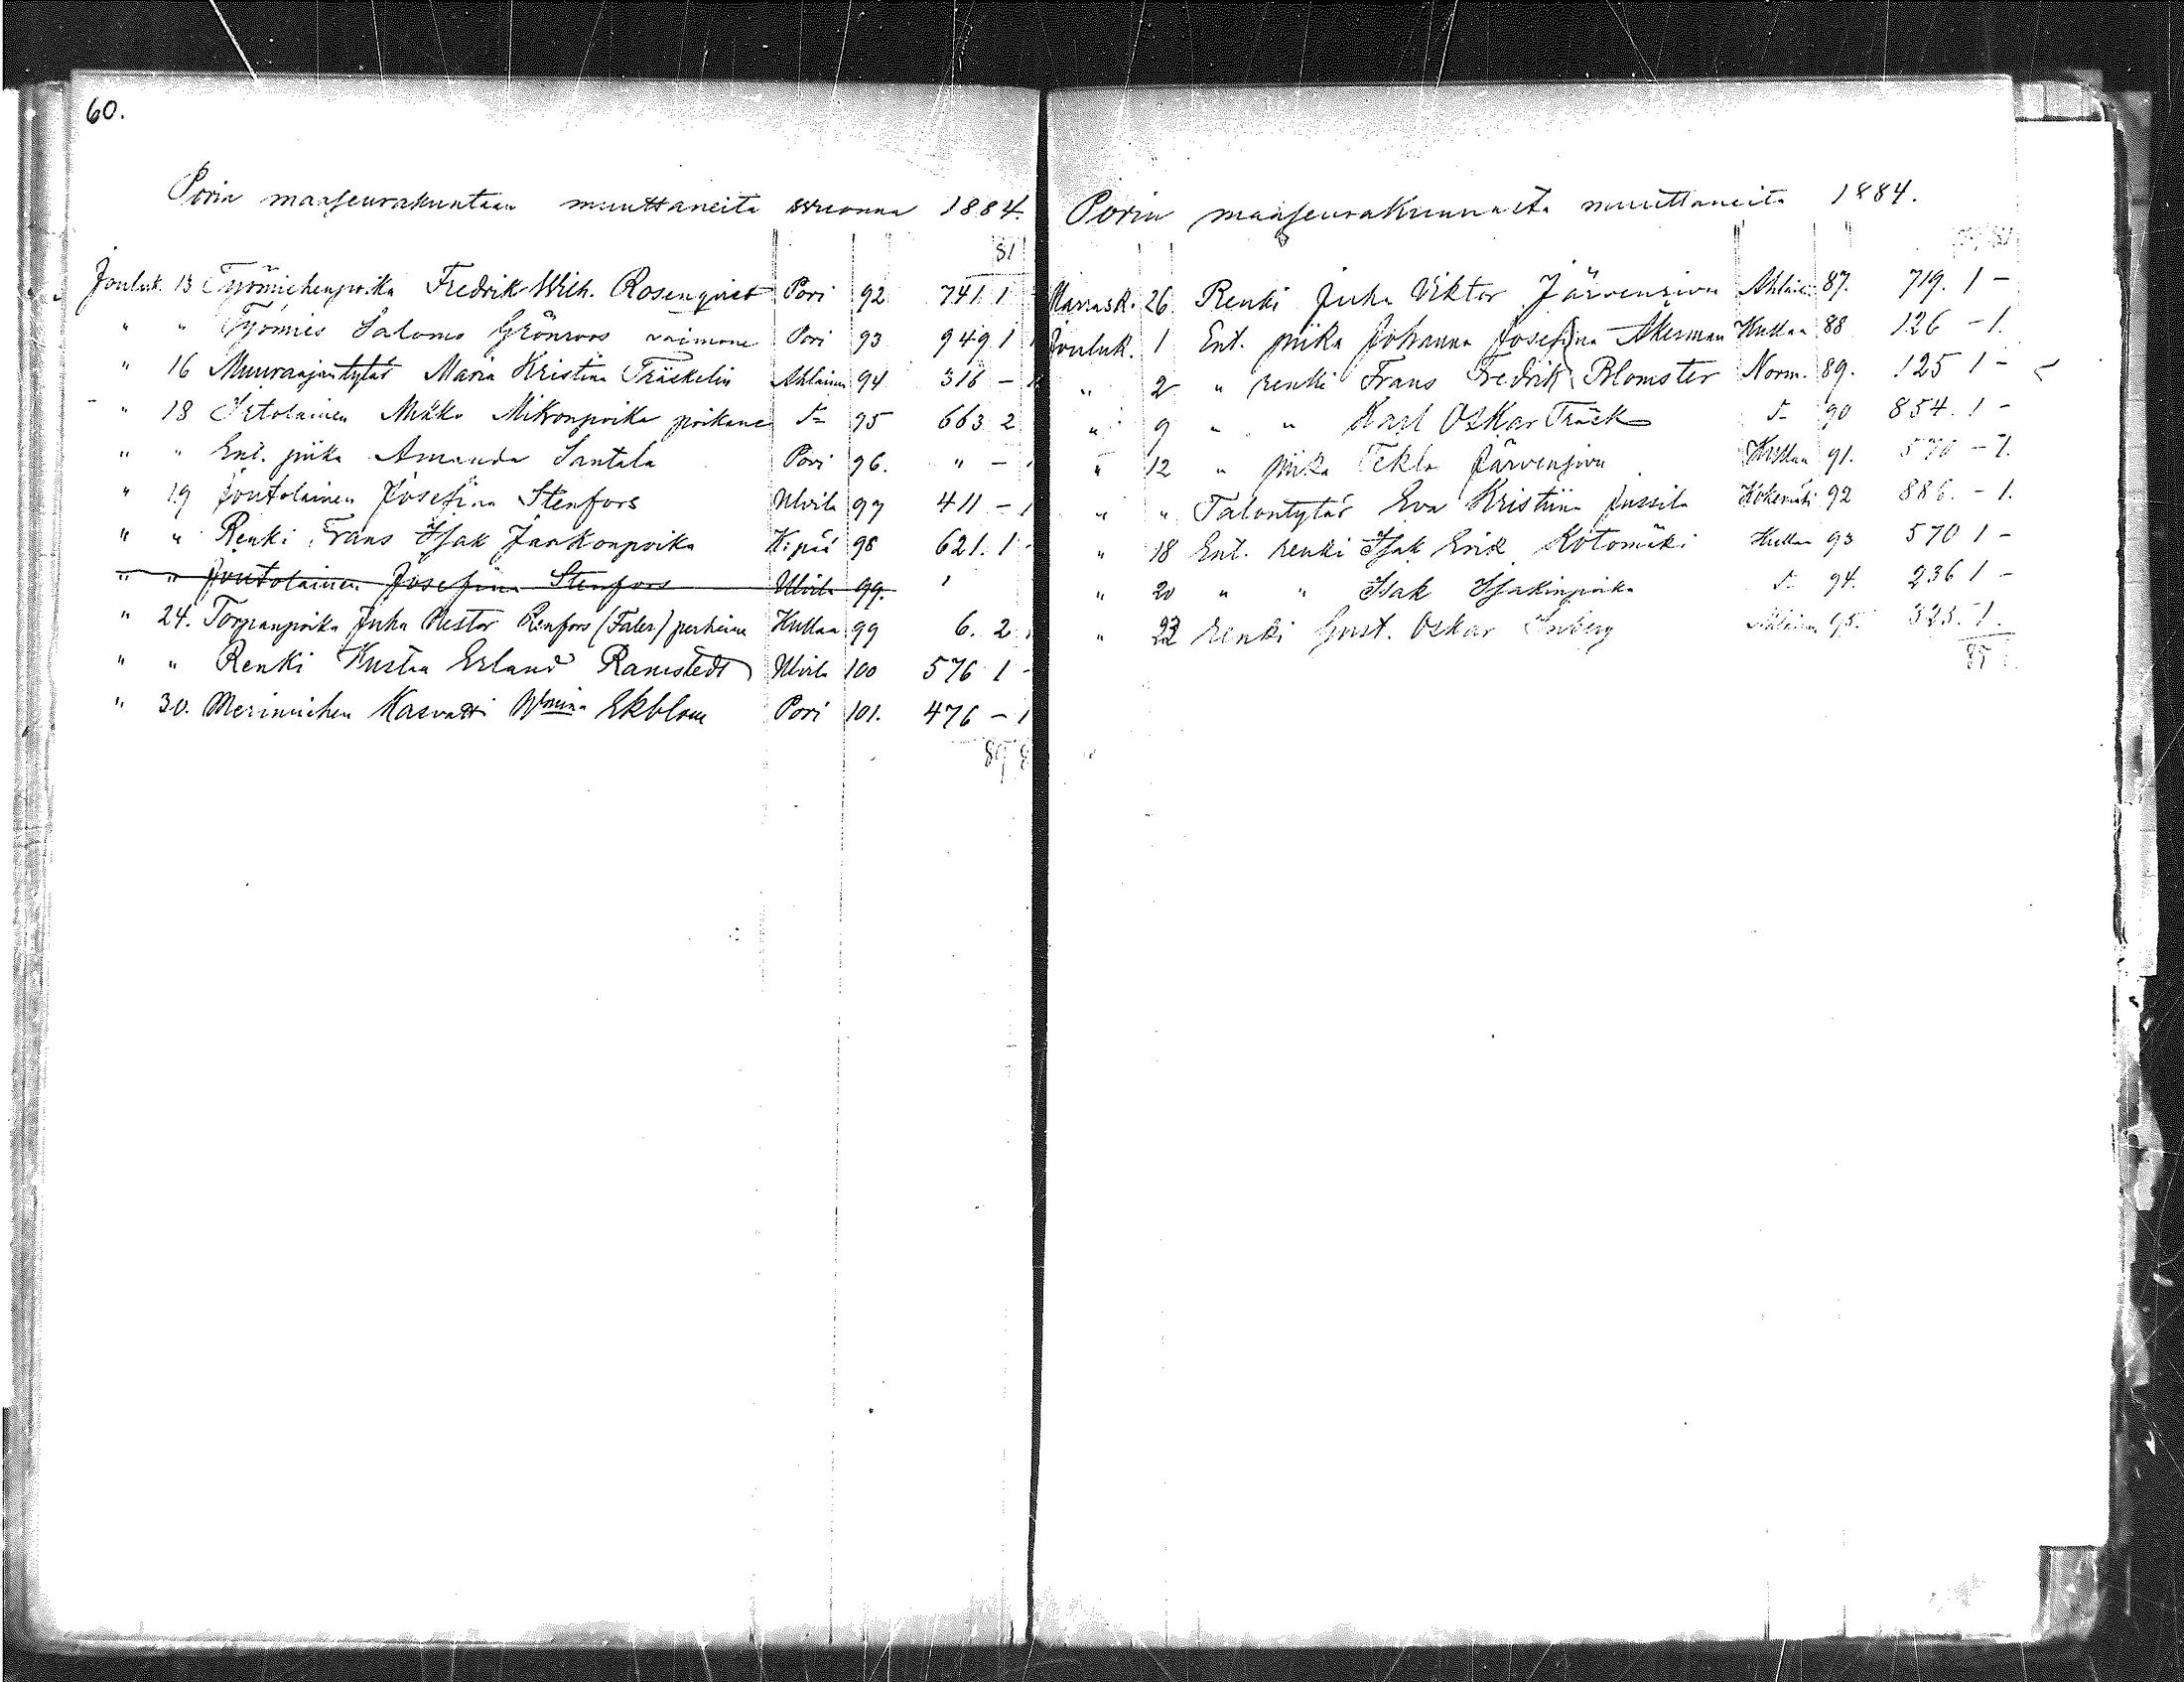 60.
Porin maaseurakuntaan muuttaneita vuonna 1884.
81
Jouluk. 13 Työmiehenpoika Fredrik Wilh. Rosenqvist Pori 92 741. 1 -
" " Työmies Salomo Grönroos vaimone Pori 93 949 1 1
" 16 Muuraajantytär Maria Kristina Träskelin Ahlainen 94 316 - 1
" 18 Irtolainen Mikko Mikonpoika poikane d:o 95 663 2
" " Ent. piika Amanda Santala Pori 96. " - 1
" 19 Joutolainen Josefina Stenfors Ulvila 97 411 - 1
" " Renki Frans Isak Jaakonpoika K:pää 98 621. 1 -
" " Joutolainen Josefina Stenfors Ulvila 99.
" 24. Torpanpoika Juha Nestor Renfors (Faler) perheine Kullaa 99 6. 2
" " Renki Kustaa Erland Ramstedt Ulvila 100 576 1 -
" 30. Merimiehen Kasvatti Wmina Ekblom Pori 101. 476 - 1
89
Porin maaseurakunnasta muuttaneita 1884.
Marrask. 26 Renki Juha Viktor Järvensivu Ahlainen 87. 719. 1 -
Jouluk. 1 Ent. piika Johanna Josefina Akerman Kullaa 88 126 - 1.
" 2 " renki Frans Fredrik Blomster Norm. 89. 125 1 -
" 9 " " Karl Oskar Träsk d:o 90 854. 1 -
" 12 " piika Tekla Järvensivu Kullaa 91. 570 - 1.
" " Talontytär Eva Kristiina Jussila Kokemäki 92 886. - 1.
" 18 Ent. renki Isak Erik Kotomäki Kullaa 93 570 1 -
" 20 " " Isak Isakinpoika d:o 94. 236 1 -
" 22 renki Gust. Oskar Inberg Ahlainen 95. 323. 1.
85